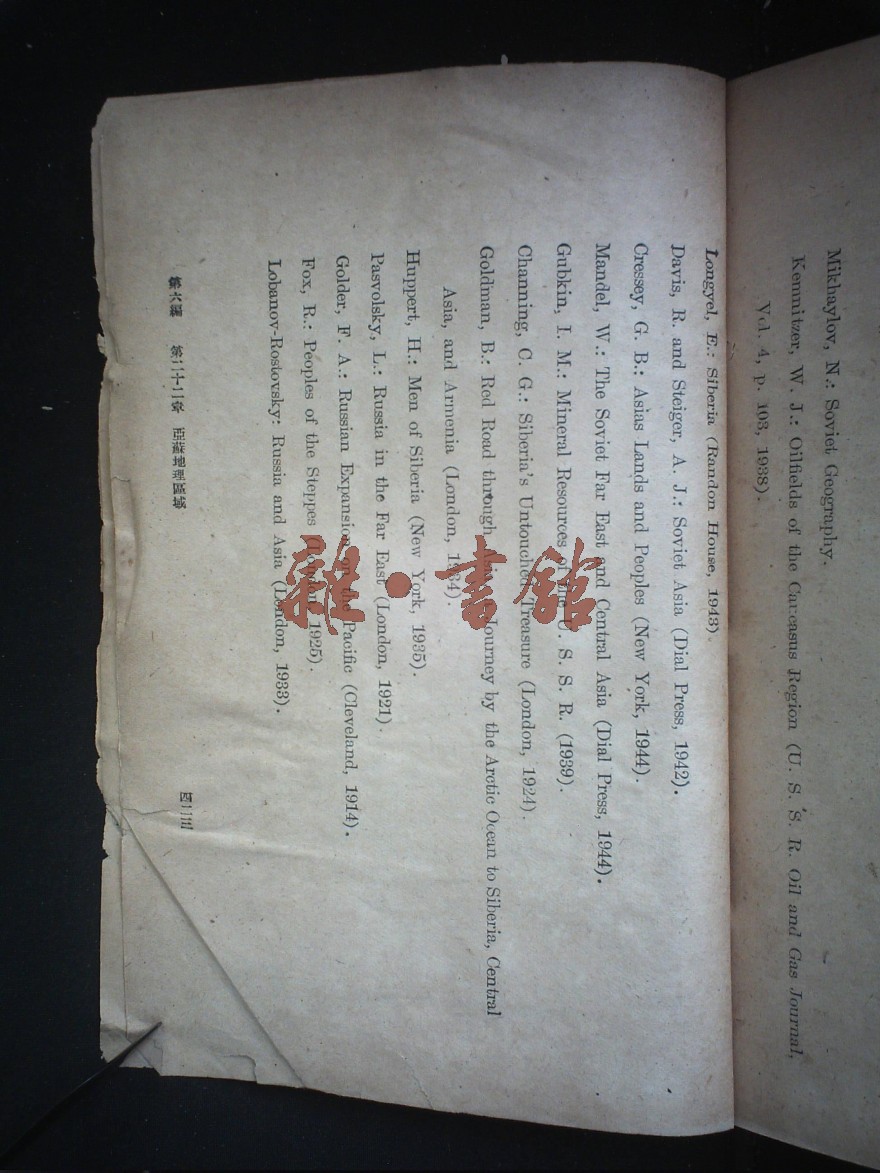 Mikhaylov, N.: Soviet Geography.
Kemnitzer, W. J.: Oilfields of the Caucasus Region (U. S. S. R. Oil and Gas Journal,
Vol. 4, p. 103, 1938).
Longyel, E.: Siberia (Randon House, 1943).
Davis, R. and Steiger, A. J.: Soviet Asia (Dial Press, 1942).
Cressey, G. B.: Asias Lands and Peoples (New York, 1944).
Mandel, W.: The Soviet Far East and Central Asia (Dial Press, 1944).
Gubkin, I. M.: Mineral Resources of the U. S. S. R. (1939).
Channing, C. G.: Siberia's Untouched Treasure (London, 1924).
Goldman, B.: Red Road through Asia, Journey by the Arctic Ocean to Siberia, Central
Asia, and Armenia (London, 1934).
Huppert, H.: Men of Siberia (New York, 1935).
Pasvolsky, L.: Russia in the Far East (London, 1921).
Golder, F. A.: Russian Expansion on the Pacific (Cleveland, 1914).
Fox, R.: Peoples of the Steppes (London, 1925).
Lobanov-Rostovsky: Russia and Asia (London, 1933).
第六編 第二十二章 亞洲
雜·書館